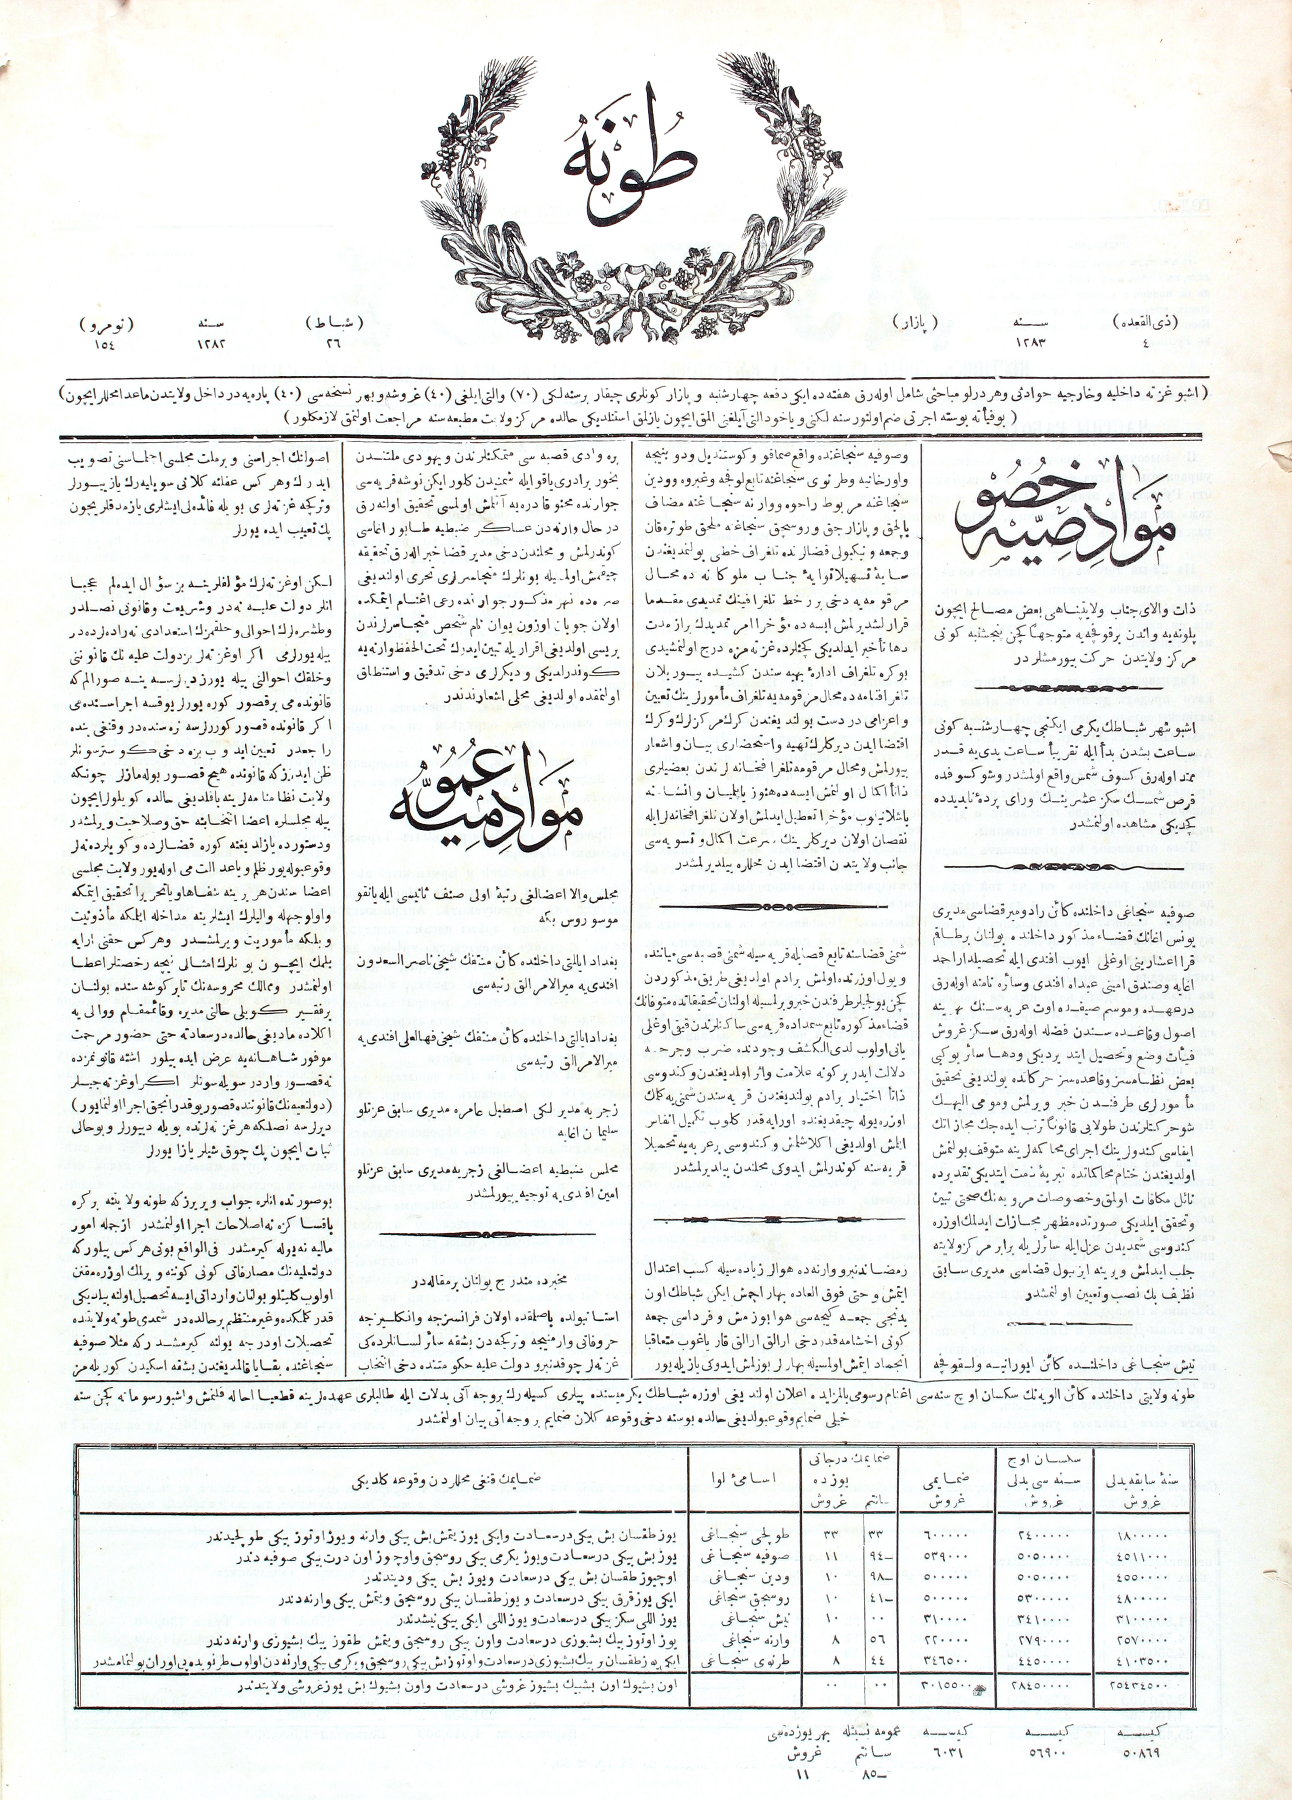 طونه
(ذی القعده) سنه (پازار)
٤ ١٢٨٣
(شباط) سنه (نومرو)
٢٦ ١٢٨٢ ١٥٤
(اشبو غزته داخلیه و خارجیه حوادثی و هر درلو مباحثی شامل اوله‌رق هفته‌ده ایکی دفعه چهارشنبه و بازار کونلری چیقار برسنه‌لکی (٧٠) والتی ایلغی (٤٠) غروشه و بهر نسخه‌سی (٤٠) پاره‌یه در داخل ولایتدن ماعدا محللر ایچون)
(بوفیأته پوسته اجرتی ضم اولنور سنه لکنی و یاخود التی آیلغنی المق ایچون یازلق استنلدیکی حالده مرکز ولایت مطبعه سنه مراجعت اولنمق لازمکلور)
مواد خصوصیه
ذات والای جناب ولایتپناهی بعض مصالح ایچون
پلونه‌یه واندن برقوفچه‌یه متوجهاً کچن پنجشنبه کونی
مرکز ولایتدن حرکت بیورمشلر در
اشبو شهر شباطك یکرمی ایکنجی چهارشنبه کونی
ساعت بشدن بدأ ایله تقریباً ساعت یدی‌یه قدر
ممتد اوله‌رق کسوف شمس واقع اولمشدر وشو کسوفده
قرص شمسك سکز عشرینك ورای پردهٔ نابدیده
کچدیکی مشاهده اولنمشدر
صوفیه سنجاغی داخلنده کائن رادومیر قضاسی مدیری
یونس اغانك قضاء مذکور داخلنده بولنان برطاقم
قرا اعشارینی اوغلی ایوب افندی ایله تحصیلدار احمد
اغایه وصندق امینی عبداه افندی وسائره نامنه اوله‌رق
اصول وقاعده سندن فضله اوله‌رق سکز غروش
فیأت وضع وتحصیل ایتدیردیکی ودها سائر بوکبی
بعض نظامسز وقاعده‌سز حرکاتده بولندیغی تحقیق
مأمورلری طرفندن خبر ویرلمش ومومی الیهك
شو حرکتلرندن طولایی قانوناً ترتب ایده‌جك مجازاتك
ایفاسی کندولرینك اجرای محاکمه‌لرینه متوقف بولنمش
اولدیغندن ختام محاکماتنده تبریهٔ ذمت ایتدیکی تقدیرده
نائل مکافات اولمق وخصوصات مرویه‌نك صحتی تبین
وتحقق ایلدیکی صورتده مظهر مجازات ایدلمك اوزره
کندوسی شمدیدن عزل ایله سائرلریله برابر مرکز ولایته
جلب ایدلمش ویرینه ایزنبول قضاسی مدیری سابق
نظیف بك نصب وتعیین اولنمشدر
نیش سنجاغی داخلنده کائن ایورانیه ولسقوفچه
وصوفیه سنجاغنده واقع صماقو و کوستندیل ودوبنیجه
واورخانیه وطرنوی سنجاغنه تابع لوفچه وغبروه وودین
سنجاغنه مربوط راحوه ووارنه سنجاغنه مضاف
پالچق وپازارجق وروسچق سنجاغنه ملحق طوتره‌قان
وجمعه ونیکبولی قضالرنده تلغراف خطی بولنمدیغندن
سایهٔ تسهیلاتوایهٔ جناب ملوکانه‌ده محال
مرقومه‌یه دخی بررخط تلغرافینك تمدیدی مقدما
قرارلشدیرلمش ایسه‌ده مؤخرا امر تمدیدك برازمدت
دها تأخیر ایدلدیکی کچنلرده غزته‌مزه درج اولنمشیدی
بوکره تلغراف ادارهٔ بهیه سندن کشیده بیوریلان
تلغرافنامه‌ده محال مرقومه‌یه تلغراف مأمورلرینك تعیین
واعزامی در دست بولندیغندن کرك مرکزلك وکرك
اقتضا ایدن دیرکلرك تهیه واستحضاری بیان واشعار
بیورلمش ومحال مرقومه تلغرافخانه‌لرندن بعضیلری
ذاتاً اکمال اولنمش ایسه‌ده هنوز یاپلمیان وانشاآتنه
باشلانیلوب مؤخرا تعطیل ایدلمش اولان تلغرافخانه‌لرایله
نقصان اولان دیرکلرینك بسرعت اکمال وتسویه‌سی
جانب ولایتدن اقتضا ایدن محللره بیلدیرلمشدر
شمنی قضاسنه تابع قصیله قریه سیله شمنی قصبه‌سی میاننده
ویول اوزرنده اولمش برادم اولدیغی طریق مذکوردن
کچن یولجیلر طرفندن خبر ویرلمسیله اولنان تحقیقاتده متوفانك
قضاء مذکوره تابع سمداده قریه سی ساکنلرندن قنیق اوغلی
یانی اولوب لدی الکشف وجودنده ضرب وجرحه
دلالت ایدر برکونه علامت واثر اولمدیغندن وکندوسی
ذاتاً اختیار برادم بولندیغندن قریه سندن شمنی‌یه کلك
اوزره یوله چیقدیغنده اورایه قدر کلوب تکمیل انفاس
ایتمش اولدیغی اکلاشلمش وکندوسی برعربه‌یه تحمیلا
قریه‌سنه کوندرلمش ایدوکی محلندن بیلدیرلمشدر
رمضاندنبرو وارنه‌ده هوالر زیاده سیله کسب اعتدال
ایتمش وحتی فوق العاده بهار اچمش ایکن شباطك اون
یدنجی جمعه کیجه‌سی هوا بوزمش وفرداسی جمعه
کونی اخشامه قدر دخی ارالق ارالق قار یاغوب متعاقبا
انجماد ایتمش اولمسیله بهارلر بوزلمش ایدوکی یازیله‌یور
بره‌وادی قصبه‌سی متمکنلرندن ویهودی ملتندن
بخور برادری یاقو ایله شمنیدن کلور ایکن نوشه قریه‌سی
در حال وارنه‌دن عساکر ضبطیه طابور اغاسی
کوندرلمش ومحلندن دخی مدیر قضا خبر الەرق تحقیقه
چیقمش اولمسیله بونلرك متجاسرلری تحری اولندیغی
صره‌ده نهر مذکور جوارنده رعی اغنام ایتمکده
اولان چوبان اوزون یوان نام شخص متجاسرلرندن
بریسی اولدیغی اقراریله تبین ایدرك تحت الحفظ وارنه‌یه
کوندرلدیکی ودیکرلری دخی تدقیق واستنطاق
اولنمقده اولدیغی محلی اشعارندندر
مواد عمومیه
مجلس والا اعضالغی رتبهٔ اولی صنف ثانیسی ایله یانقو
موسوروس بکه
بغداد ایالتی داخلنده کائن منتفك شیخی ناصر السعدون
افندی‌یه میر الامرالق رتبه‌سی
بغداد ایالتی داخلنده کائن منتفك شیخی فهالعلی افندی‌یه
میر الامرالق رتبه‌سی
زجریه مدیرلکی اصطبل عامره مدیری سابق عزتلو
سلیمان اغایه
مجلس ضبطیه اعضالغی زجریه مدیری سابق عزتلو
امین افندی‌یه توجیه بیورلمشدر
مخبرده مندرج بولنان برمقاله‌در
استانبولده باصلمقده اولان فرانسزجه وانکلیزجه
حروفاتی وارمنیجه ورکجه‌دن بشقه سائر لسانلرده‌کی
غزته‌لر چوقدنبرو دولت علیه حکومتنده دخی انتخاب
اصولنك اجراسنی وبرملت مجلسی اجتماسنی تصویب
ایدرك وهرکس عقلنه کلانی سویلیه‌رك یازییورلر
وترکجه غزته‌لری بویله فائده‌لی ایشلری یازمدقلریچون
پك تعییب ایده‌یورلر
لکن او غزته‌لرك مؤلفلرینه بز سؤال ایده‌لم عجبا
انلر دولت علیه نه‌در وشریعت وقانونی نصلدر
وطشره‌لرك احوالی وخلقمزك استعدادی نه راده‌لرده‌در
بیله‌یورلرمی اکر او غزته‌لر بزدولت علیه‌نك قانوننی
وخلقك احوالنی بیله‌یورز دیرلرسه ینه صورالم‌که
قانونده‌می برقصور کوره‌یورلر یوقسه اجراسنده‌می
اکر قانونده قصور کوررلرسه نره‌سنده‌در وقنغی بنده
راجعدر تعیین ایدوب بزه دخی کوسترسونلر
ظن ایدرزکه قانونده هیچ قصور بوله‌مازلر چونکه
ولایت نظامنامه‌لرینه باقلدیغی حالده کویلولر ایچون
بیله مجلسلره اعضا انتخابنه حق وصلاحیت ویرلمشدر
بوصورتده انلره جواب ویررزکه طونه ولایتنه برکره
باقسا‌کزه نه اصلاحات اجرا اولنمشدر ازجمله امور
مالیه نه یوله کیرمشدر فی الواقع بونی هرکس بیلورکه
دولتعلیه‌نك مصارفاتی کونی کوننه ویرلمك اوزره مقنن
اولوب کلیتلو بولنان وارداتی ایسه تحصیل اولنه بیله‌دیکی
قدر کلمکده وغیر منتظم برحالده‌در شمدی طونه ولایتنده
تحصیلات اودرجه یولنه کیرمشدرکه مثلا صوفیه
سنجاغنده بقایا قالمدیغندن بشقه اسکیدن کوریله‌مز
طونه ولایتی داخلنده کائن الویه‌نك سکسان اوچ سنه‌سی اغنام رسومی بالمزایده اعلان اولندیغی اوزره شباطك یکرمیسنده پیلری کسیله‌رك بروجه آتی بدلات ایله طالبلری عهده‌لرینه قطعیا احاله قلنمش واشبو رسوماته کچن سنه
خیلی ضمایم وقوعبولدیغی حالده بوسنه دخی وقوعه کلان ضمایم بروجه آتی بیان اولنمشدر
سنهٔ سابقه بدلی غروش | سکسان اوچ سنه‌سی بدلی غروش | ضمایمی غروش | ضمایمك درجاتی یوزده سانتم غروش | اسامئ لوا | ضمایمك قنغی محللردن وقوعه کلدیکی
١٨٠٠٠٠٠ ٢٤٠٠٠٠٠ ٦٠٠٠٠٠ ٣٣ ٣٣ طولچی سنجاغی یوز طقسان بش بیکی درسعادت وایکی یوز یتمش بش بیکی وارنه و یوز اوتوز بیکی طولچیدندر
٤٥١١٠٠٠ ٥٠٥٠٠٠٠ ٥٣٩٠٠٠ ٩٤ـ ١١ صوفیه سنجاغی یوز بش بیکی درسعادت و یوز یکرمی بیکی روسچق واوچیوز اون درت بیکی صوفیه‌دندر
٤٥٥٠٠٠٠ ٥٠٥٠٠٠٠ ٥٠٠٠٠٠ ٩٨ـ ١٠ ودین سنجاغی اوچیوز طقسان بش بیکی درسعادت و یوز بش بیکی ودیندندر
٤٨٠٠٠٠٠ ٥٣٠٠٠٠٠ ٥٠٠٠٠٠ ٤١ـ ١٠ روسچق سنجاغی ایکی یوز قرق بیکی درسعادت و یوز طقسان بیکی روسچق و یتمش بیکی وارنه‌دندر
٣١٠٠٠٠٠ ٣٤١٠٠٠٠ ٣١٠٠٠٠ ٠٠ ١٠ نیش سنجاغی یوز اللی سکز بیکی درسعادت و یوز اللی ایکی بیکی نیشدندر
٢٥٧٠٠٠٠ ٢٧٩٠٠٠٠ ٢٢٠٠٠٠ ٥٦ ٨ وارنه سنجاغی یوز اوتوز بیك بشیوزی درسعادت واون بیکی روسچق و یتمش طقوز بیك بشیوزی وارنه‌دندر
٤١٠٣٥٠٠ ٤٤٥٠٠٠٠ ٣٤٦٥٠٠ ٤٤ ٨ طرنوی سنجاغی ایکی یوز طقسان بر بیك بشیوزی درسعادت و اوتوز بش بیکی روسچق و یکرمی بیکی وارنه‌دن اولوب طرنوه‌ده پی اوران بولنمامشدر
٢٥٤٣٤٥٠٠ ٢٨٤٥٠٠٠٠ ٣٠١٥٥٠٠ ٠٠ ٠٠ اون بشیوك اون بشبیك بشیوز غروشی درسعادت واون بشیوك بش یوز غروشی ولایتدندر
کیسه کیسه کیسه عمومه نسبتله بهر یوزده‌سی
٥٠٨٦٩ ٥٦٩٠٠ ٦٠٣١ سانتم غروش
٨٥ـ ١١